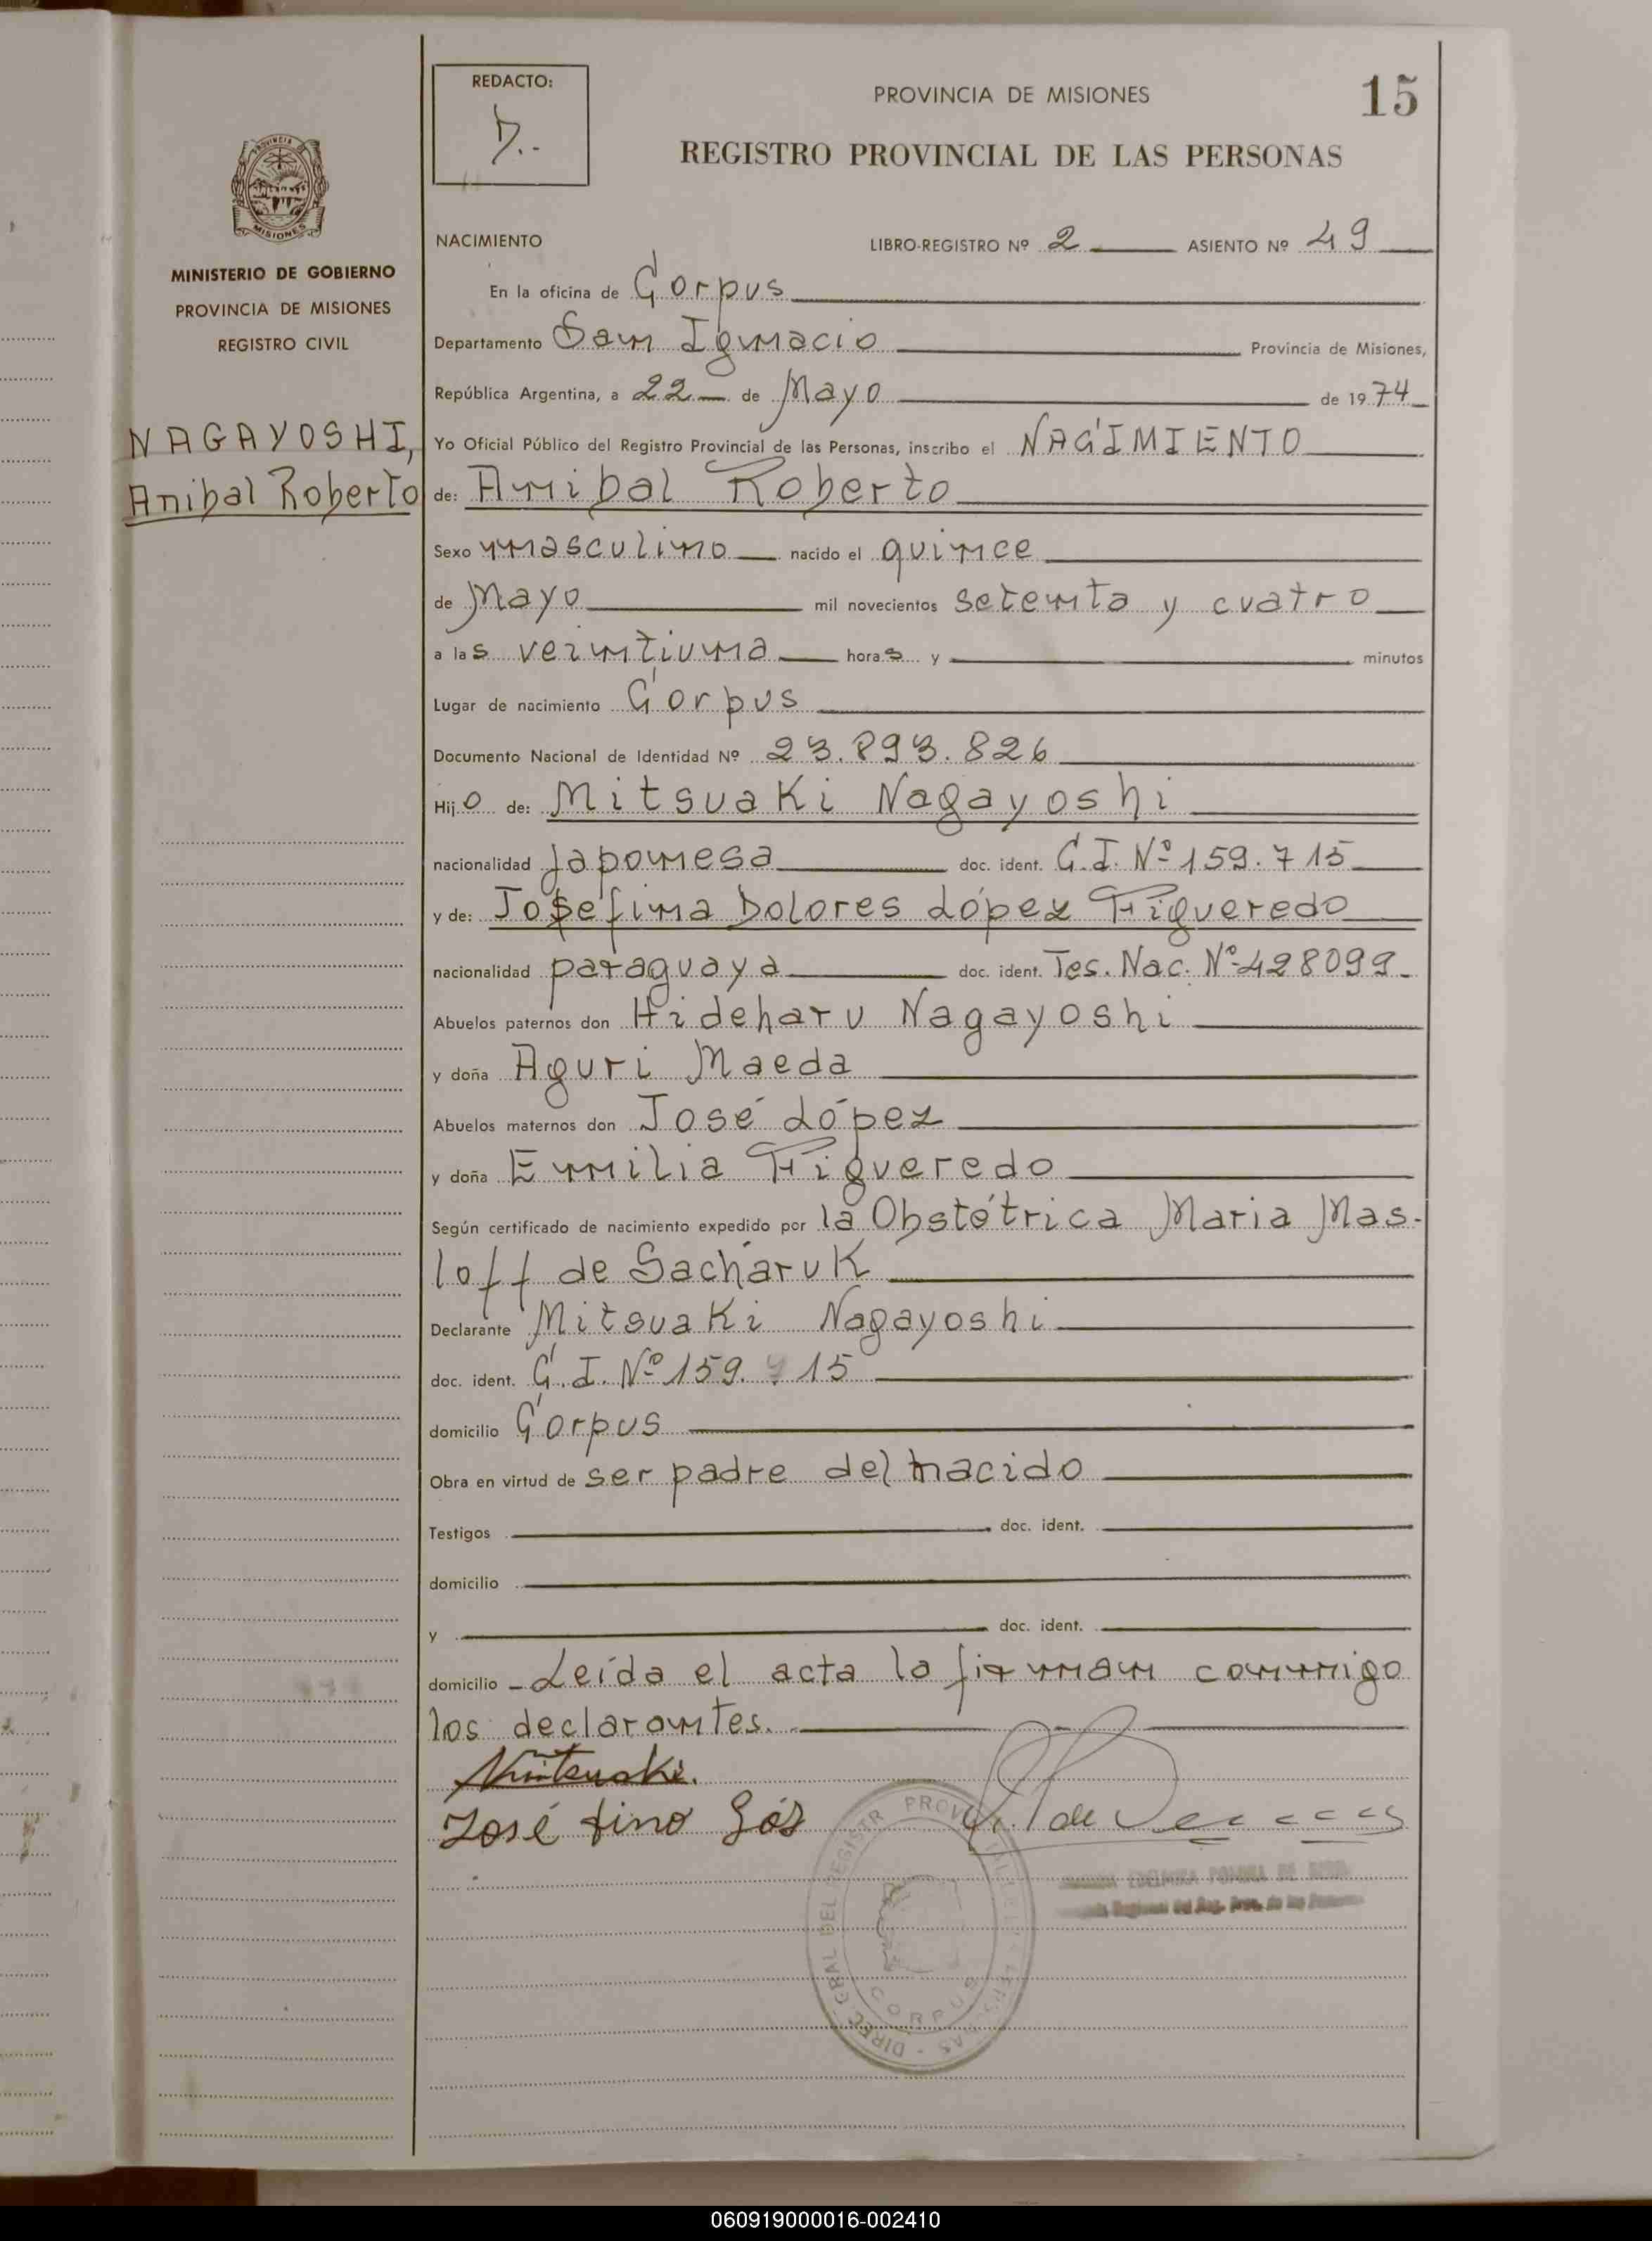 REDACTO:
PROVINCIA DE MISIONES
15
REGISTRO PROVINCIAL DE LAS PERSONAS
PROVINCIA
MISIONES
MINISTERIO DE GOBIERNO
PROVINCIA DE MISIONES
REGISTRO CIVIL
NAGAYOSHI,
Anibal Roberto
NACIMIENTO LIBRO-REGISTRO Nº 2 ASIENTO Nº 49
En la oficina de Corpus
Departamento San Ignacio Provincia de Misiones,
República Argentina, a 22 de Mayo de 1974
Yo Oficial Público del Registro Provincial de las Personas, inscribo el NACIMIENTO
de: Anibal Roberto
Sexo masculino nacido el quince
de Mayo mil novecientos setenta y cuatro
a las veintiuna horas y minutos
Lugar de nacimiento Corpus
Documento Nacional de Identidad Nº 23.893.826
Hijo de: Mitsuaki Nagayoshi
nacionalidad japonesa doc. ident. C.I. Nº 159.715
y de: Josefina Dolores López Figueredo
nacionalidad paraguaya doc. ident. Tes. Nac. Nº 428099
Abuelos paternos don Hideharu Nagayoshi
y doña Aguri Maeda
Abuelos maternos don José López
y doña Emilia Figueredo
Según certificado de nacimiento expedido por la Obstétrica Maria Mas-
loff de Sacharuk
Declarante Mitsuaki Nagayoshi
doc. ident. C.I. Nº 159.715
domicilio Corpus
Obra en virtud de ser padre del nacido
Testigos doc. ident.
domicilio
y doc. ident.
domicilio - Leída el acta la firman conmigo
los declarantes.
Mitsuaki.
José fino
DIREC. GRAL DEL REGISTR PROV
CORPUS
060919000016-002410